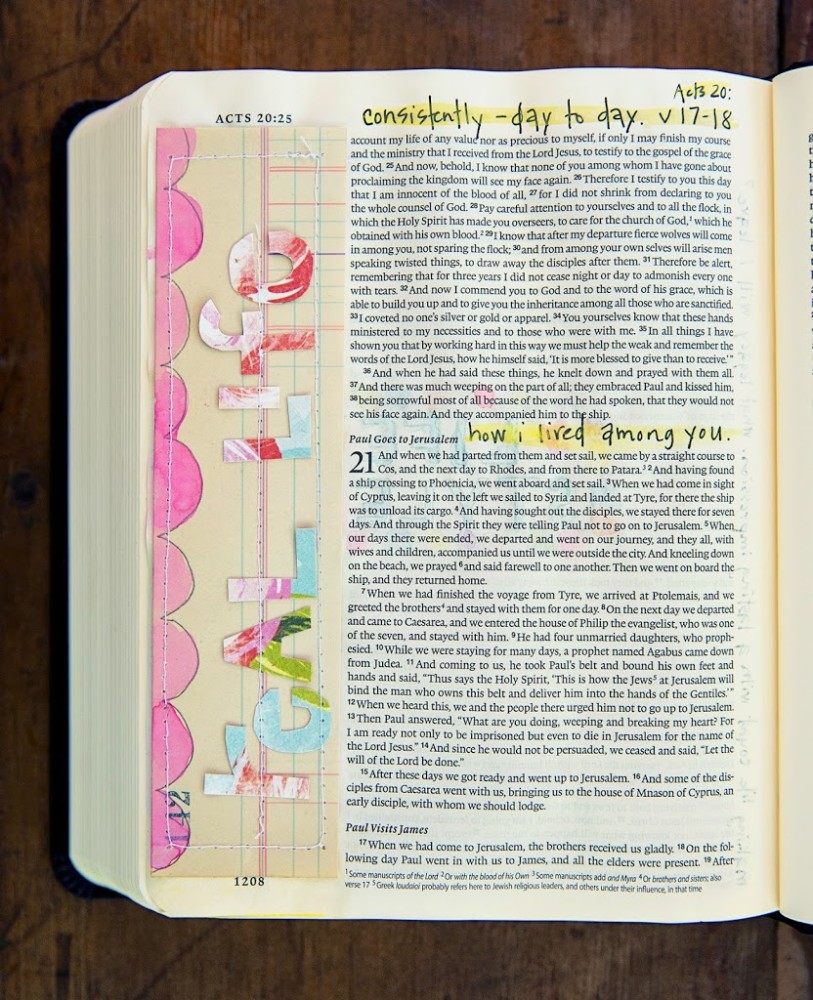 Acts 20:
consistently - day to day. v 17-18
ACTS 20:25
real life
account my life of any value nor as precious to myself, if only I may finish my course
and the ministry that I received from the Lord Jesus, to testify to the gospel of the grace
of God. 25 And now, behold, I know that none of you among whom I have gone about
proclaiming the kingdom will see my face again. 26 Therefore I testify to you this day
that I am innocent of the blood of all, 27 for I did not shrink from declaring to you
the whole counsel of God. 28 Pay careful attention to yourselves and to all the flock, in
which the Holy Spirit has made you overseers, to care for the church of God,1 which he
obtained with his own blood.2 29 I know that after my departure fierce wolves will come
in among you, not sparing the flock; 30 and from among your own selves will arise men
speaking twisted things, to draw away the disciples after them. 31 Therefore be alert,
remembering that for three years I did not cease night or day to admonish every one
with tears. 32 And now I commend you to God and to the word of his grace, which is
able to build you up and to give you the inheritance among all those who are sanctified.
33 I coveted no one's silver or gold or apparel. 34 You yourselves know that these hands
ministered to my necessities and to those who were with me. 35 In all things I have
shown you that by working hard in this way we must help the weak and remember the
words of the Lord Jesus, how he himself said, 'It is more blessed to give than to receive.'"
36 And when he had said these things, he knelt down and prayed with them all.
37 And there was much weeping on the part of all; they embraced Paul and kissed him,
38 being sorrowful most of all because of the word he had spoken, that they would not
see his face again. And they accompanied him to the ship.
Paul Goes to Jerusalem how i lived among you.
21 And when we had parted from them and set sail, we came by a straight course to
Cos, and the next day to Rhodes, and from there to Patara.3 2 And having found
a ship crossing to Phoenicia, we went aboard and set sail. 3 When we had come in sight
of Cyprus, leaving it on the left we sailed to Syria and landed at Tyre, for there the ship
was to unload its cargo. 4 And having sought out the disciples, we stayed there for seven
days. And through the Spirit they were telling Paul not to go on to Jerusalem. 5 When
our days there were ended, we departed and went on our journey, and they all, with
wives and children, accompanied us until we were outside the city. And kneeling down
on the beach, we prayed 6 and said farewell to one another. Then we went on board the
ship, and they returned home.
7 When we had finished the voyage from Tyre, we arrived at Ptolemais, and we
greeted the brothers4 and stayed with them for one day. 8 On the next day we departed
and came to Caesarea, and we entered the house of Philip the evangelist, who was one
of the seven, and stayed with him. 9 He had four unmarried daughters, who proph-
esied. 10 While we were staying for many days, a prophet named Agabus came down
from Judea. 11 And coming to us, he took Paul's belt and bound his own feet and
hands and said, "Thus says the Holy Spirit, 'This is how the Jews5 at Jerusalem will
bind the man who owns this belt and deliver him into the hands of the Gentiles.'"
12 When we heard this, we and the people there urged him not to go up to Jerusalem.
13 Then Paul answered, "What are you doing, weeping and breaking my heart? For
I am ready not only to be imprisoned but even to die in Jerusalem for the name of
the Lord Jesus." 14 And since he would not be persuaded, we ceased and said, "Let the
will of the Lord be done."
15 After these days we got ready and went up to Jerusalem. 16 And some of the dis-
ciples from Caesarea went with us, bringing us to the house of Mnason of Cyprus, an
early disciple, with whom we should lodge.
Paul Visits James
17 When we had come to Jerusalem, the brothers received us gladly. 18 On the fol-
lowing day Paul went in with us to James, and all the elders were present. 19 After
1 Some manuscripts of the Lord 2 Or with the blood of his Own 3 Some manuscripts add and Myra 4 Or brothers and sisters; also
verse 17 5 Greek Ioudaioi probably refers here to Jewish religious leaders, and others under their influence, in that time
1208